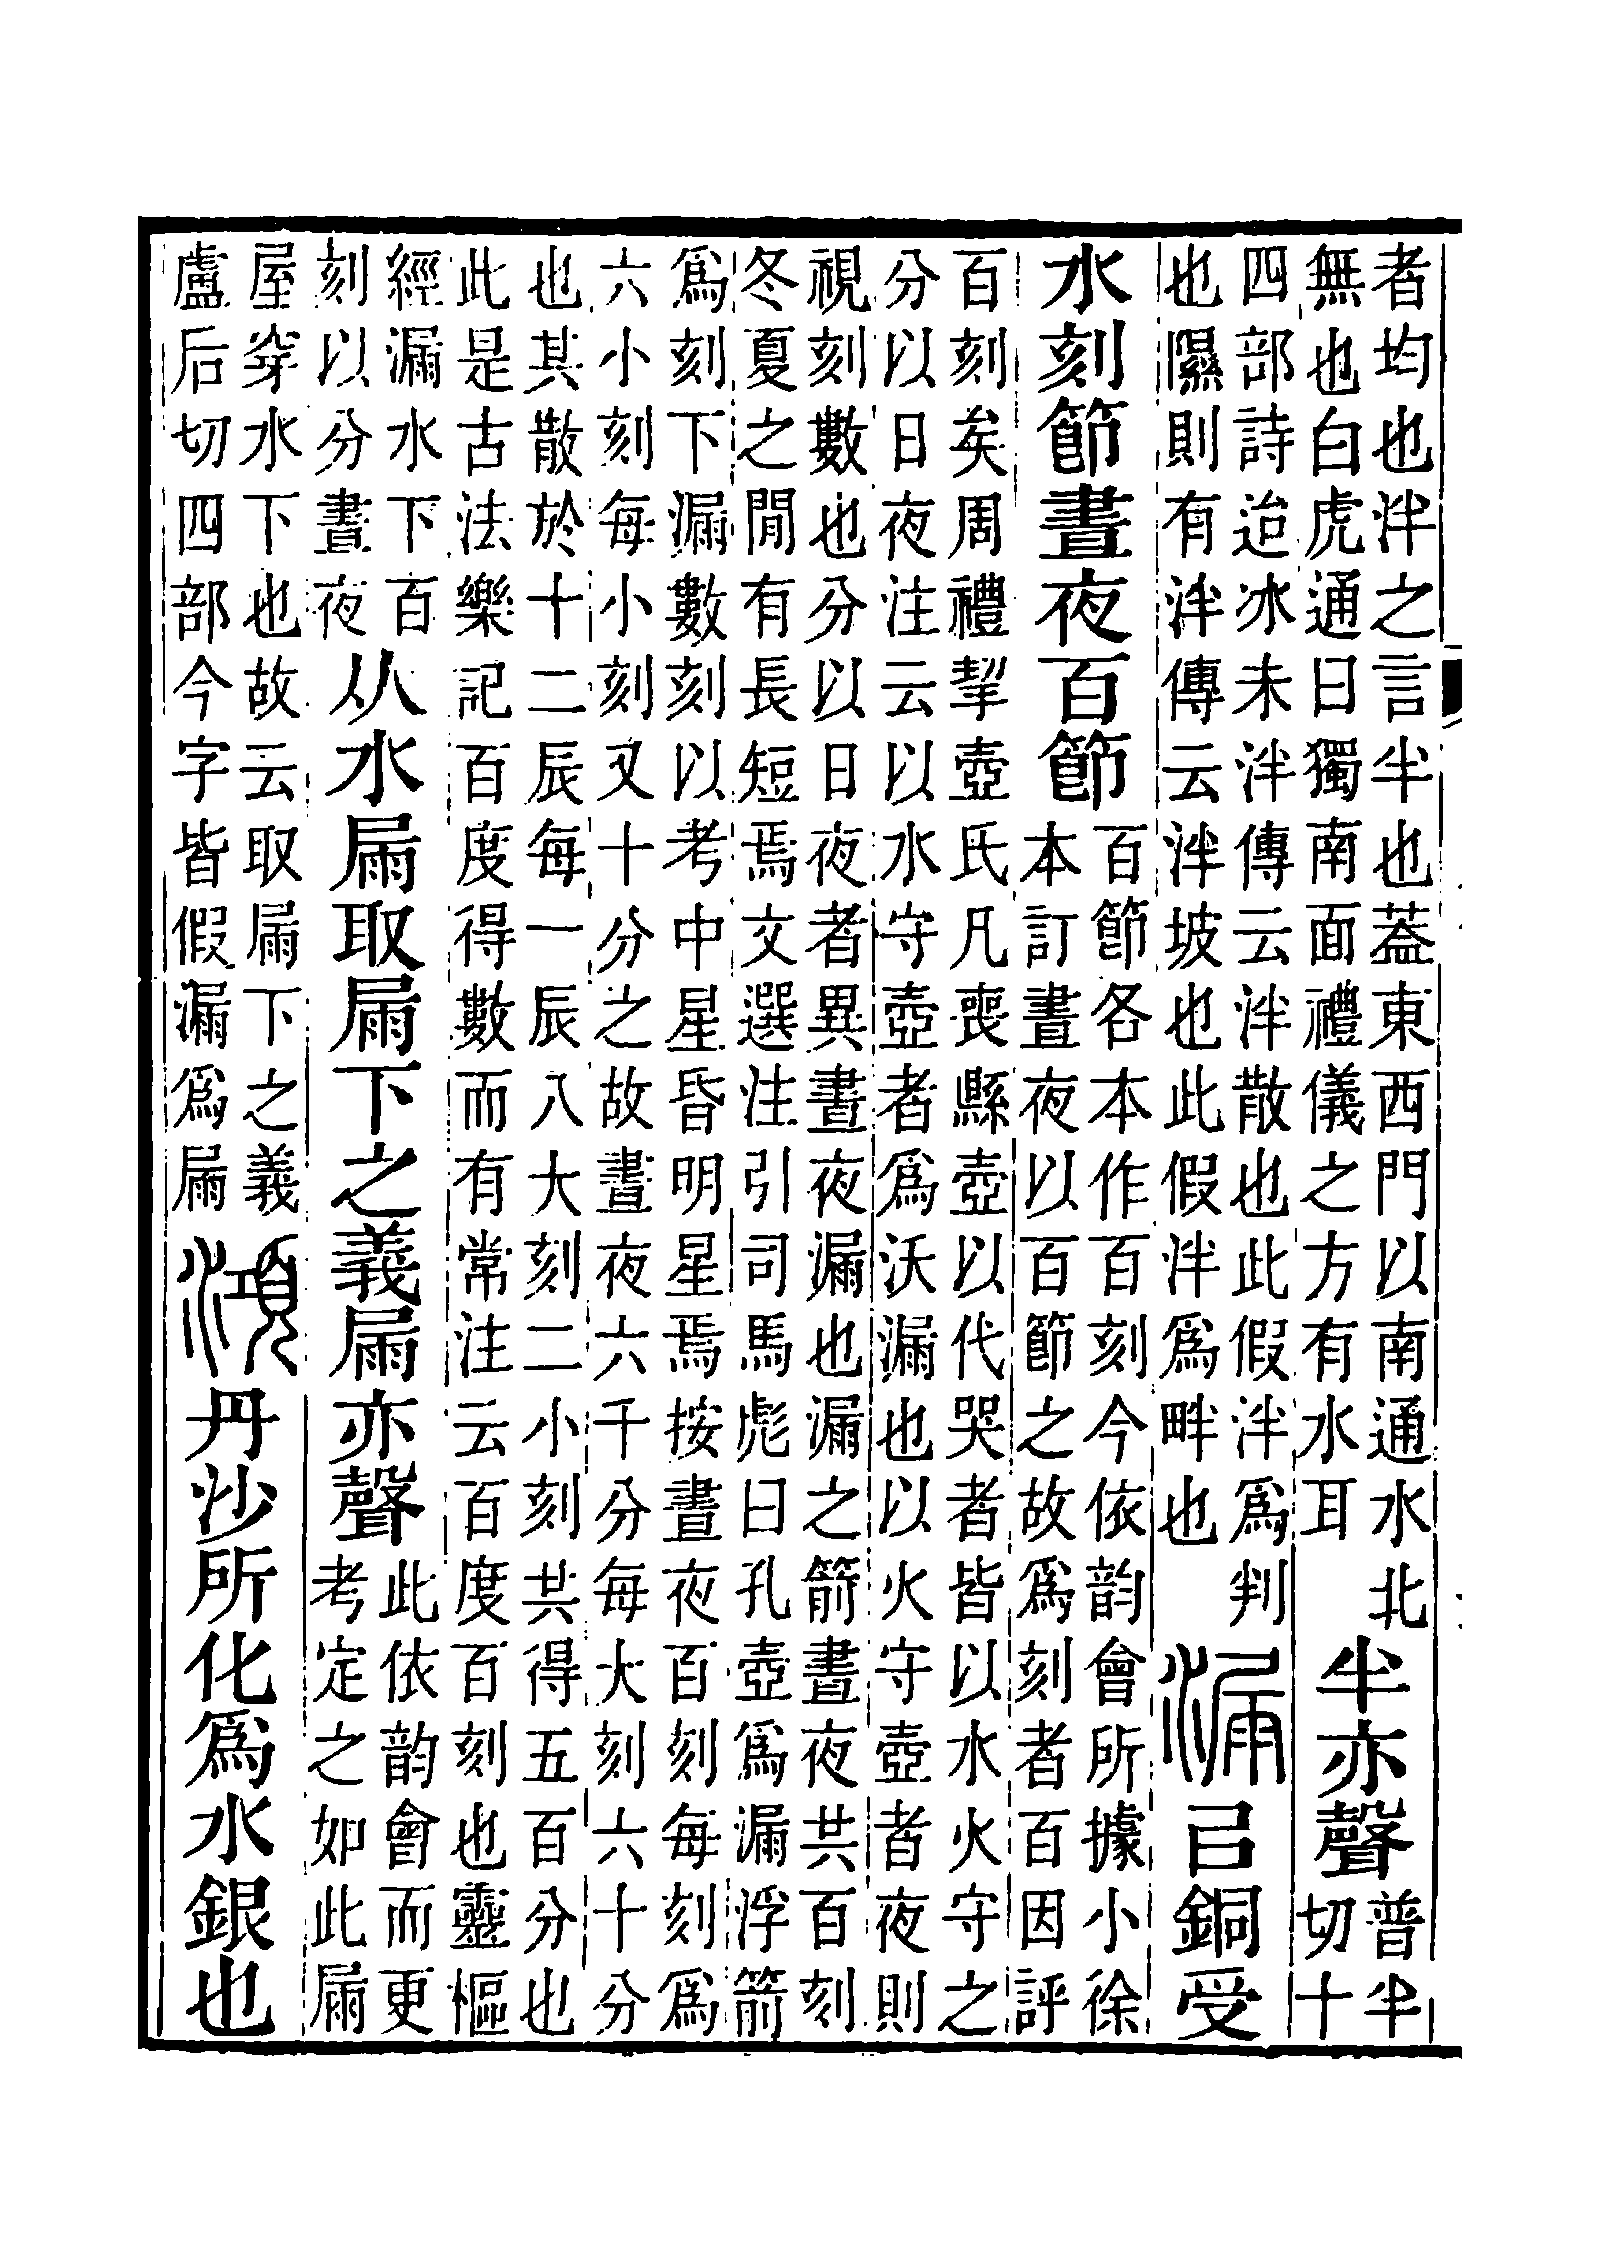 者均也泮之言半也葢東西門以南通水北
無也白虎通曰獨南面禮儀之方有水耳
半亦聲
普半
切十
四部詩迨冰未泮傳云泮散也此假泮爲判
也隰則有泮傳云泮坡也此假泮爲畔也
漏㠯銅受
水刻節晝夜百節
百節各本作百刻今依韵會所據小徐
本訂晝夜以百節之故爲刻者百因評
百刻矣周禮挈壺氏凡喪縣壺以代哭者皆以水火守之
分以日夜注云以水守壺者爲沃漏也以火守壺者夜則
視刻數也分以日夜者異晝夜漏也漏之箭晝夜共百刻
冬夏之閒有長短焉文選注引司馬彪曰孔壺爲漏浮箭
爲刻下漏數刻以考中星昏明星焉按晝夜百刻每刻爲
六小刻每小刻又十分之故晝夜六千分每大刻六十分
也其散於十二辰每一辰八大刻二小刻共得五百分也
此是古法樂記百度得數而有常注云百度百刻也靈樞
經漏水下百
刻以分晝夜
从水屚取屚下之義屚亦聲
此依韵會而更
考定之如此屚
屋穿水下也故云取屚下之義
盧后切四部今字皆假漏爲屚
澒丹沙所化爲水銀也